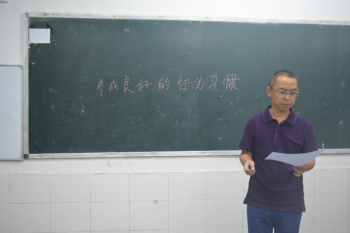 养成良好的行为习惯